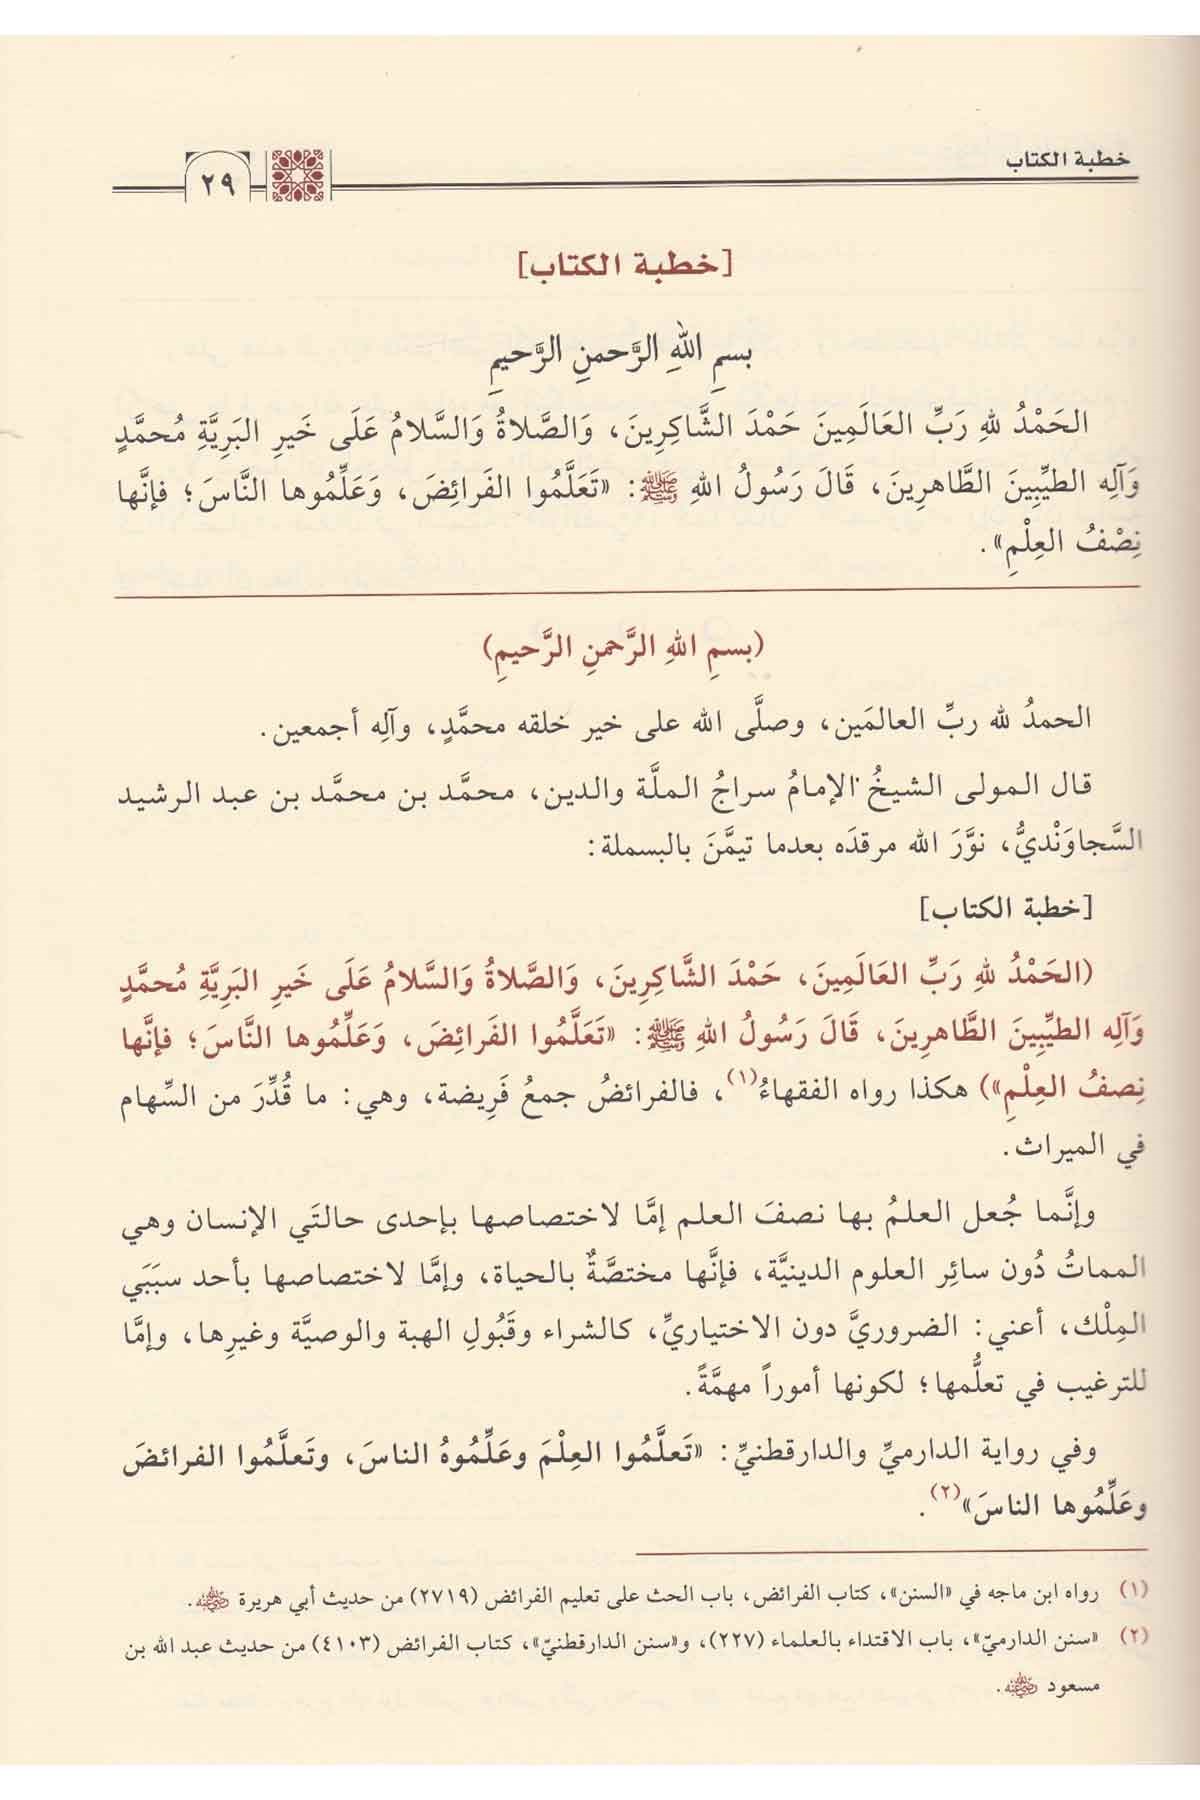 خطبة الكتاب
٢٩
[خطبة الكتاب]
بسمِ اللهِ الرَّحمنِ الرَّحيمِ
الحَمْدُ للهِ رَبِّ العَالَمِينَ حَمْدَ الشَّاكِرِينَ، وَالصَّلاةُ وَالسَّلامُ عَلَى خَيرِ البَرِيَّةِ مُحمَّدٍ
وَآلِه الطيِّبِينَ الطَّاهرِينَ، قَالَ رَسُولُ اللهِ ﷺ: «تَعَلَّمُوا الفَرائِضَ، وَعَلِّمُوها النَّاسَ؛ فإنَّها
نِصْفُ العِلْمِ».
(بسمِ اللهِ الرَّحمنِ الرَّحيمِ)
الحمدُ لله ربِّ العالمَين، وصلَّى الله على خير خلقه محمَّدٍ، وآلِه أجمعين.
قال المولى الشيخُ الإمامُ سراجُ الملَّة والدين، محمَّد بن محمَّد بن عبد الرشيد
السَّجاوَنْديُّ، نوَّرَ الله مرقدَه بعدما تيمَّنَ بالبسملة:
[خطبة الكتاب]
(الحَمْدُ للهِ رَبِّ العَالَمِينَ، حَمْدَ الشَّاكِرِينَ، وَالصَّلاةُ وَالسَّلامُ عَلَى خَيرِ البَرِيَّةِ مُحمَّدٍ
وَآلِه الطيِّبِينَ الطَّاهرِينَ، قَالَ رَسُولُ اللهِ ﷺ: «تَعَلَّمُوا الفَرائِضَ، وَعَلِّمُوها النَّاسَ؛ فإنَّها
نِصفُ العِلْمِ») هكذا رواه الفقهاءُ(١)، فالفرائضُ جمعُ فَرِيضة، وهي: ما قُدِّرَ من السِّهام
في الميراث.
وإنَّما جُعل العلمُ بها نصفَ العلم إمَّا لاختصاصها بإحدى حالتَي الإنسان وهي
المماتُ دُون سائِر العلوم الدينيَّة، فإنَّها مختصَّةٌ بالحياة، وإمَّا لاختصاصها بأحد سبَبَي
المِلْك، أعني: الضروريَّ دون الاختياريِّ، كالشراء وقَبُولِ الهبة والوصيَّة وغيرِها، وإمَّا
للترغيب في تعلُّمها؛ لكونها أموراً مهمَّةً.
وفي رواية الدارميِّ والدارقطنيِّ: «تَعلَّمُوا العِلْمَ وعَلِّمُوهُ الناسَ، وتَعلَّمُوا الفرائضَ
وعَلِّمُوها الناسَ»(٢).
(١) رواه ابن ماجه في «السنن»، كتاب الفرائض، باب الحث على تعليم الفرائض (٢٧١٩) من حديث أبي هريرة رضي الله عنه.
(٢) «سنن الدارميّ»، باب الاقتداء بالعلماء (٢٢٧)، و«سنن الدارقطنيّ»، كتاب الفرائض (٤١٠٣) من حديث عبد الله بن
مسعود رضي الله عنه.